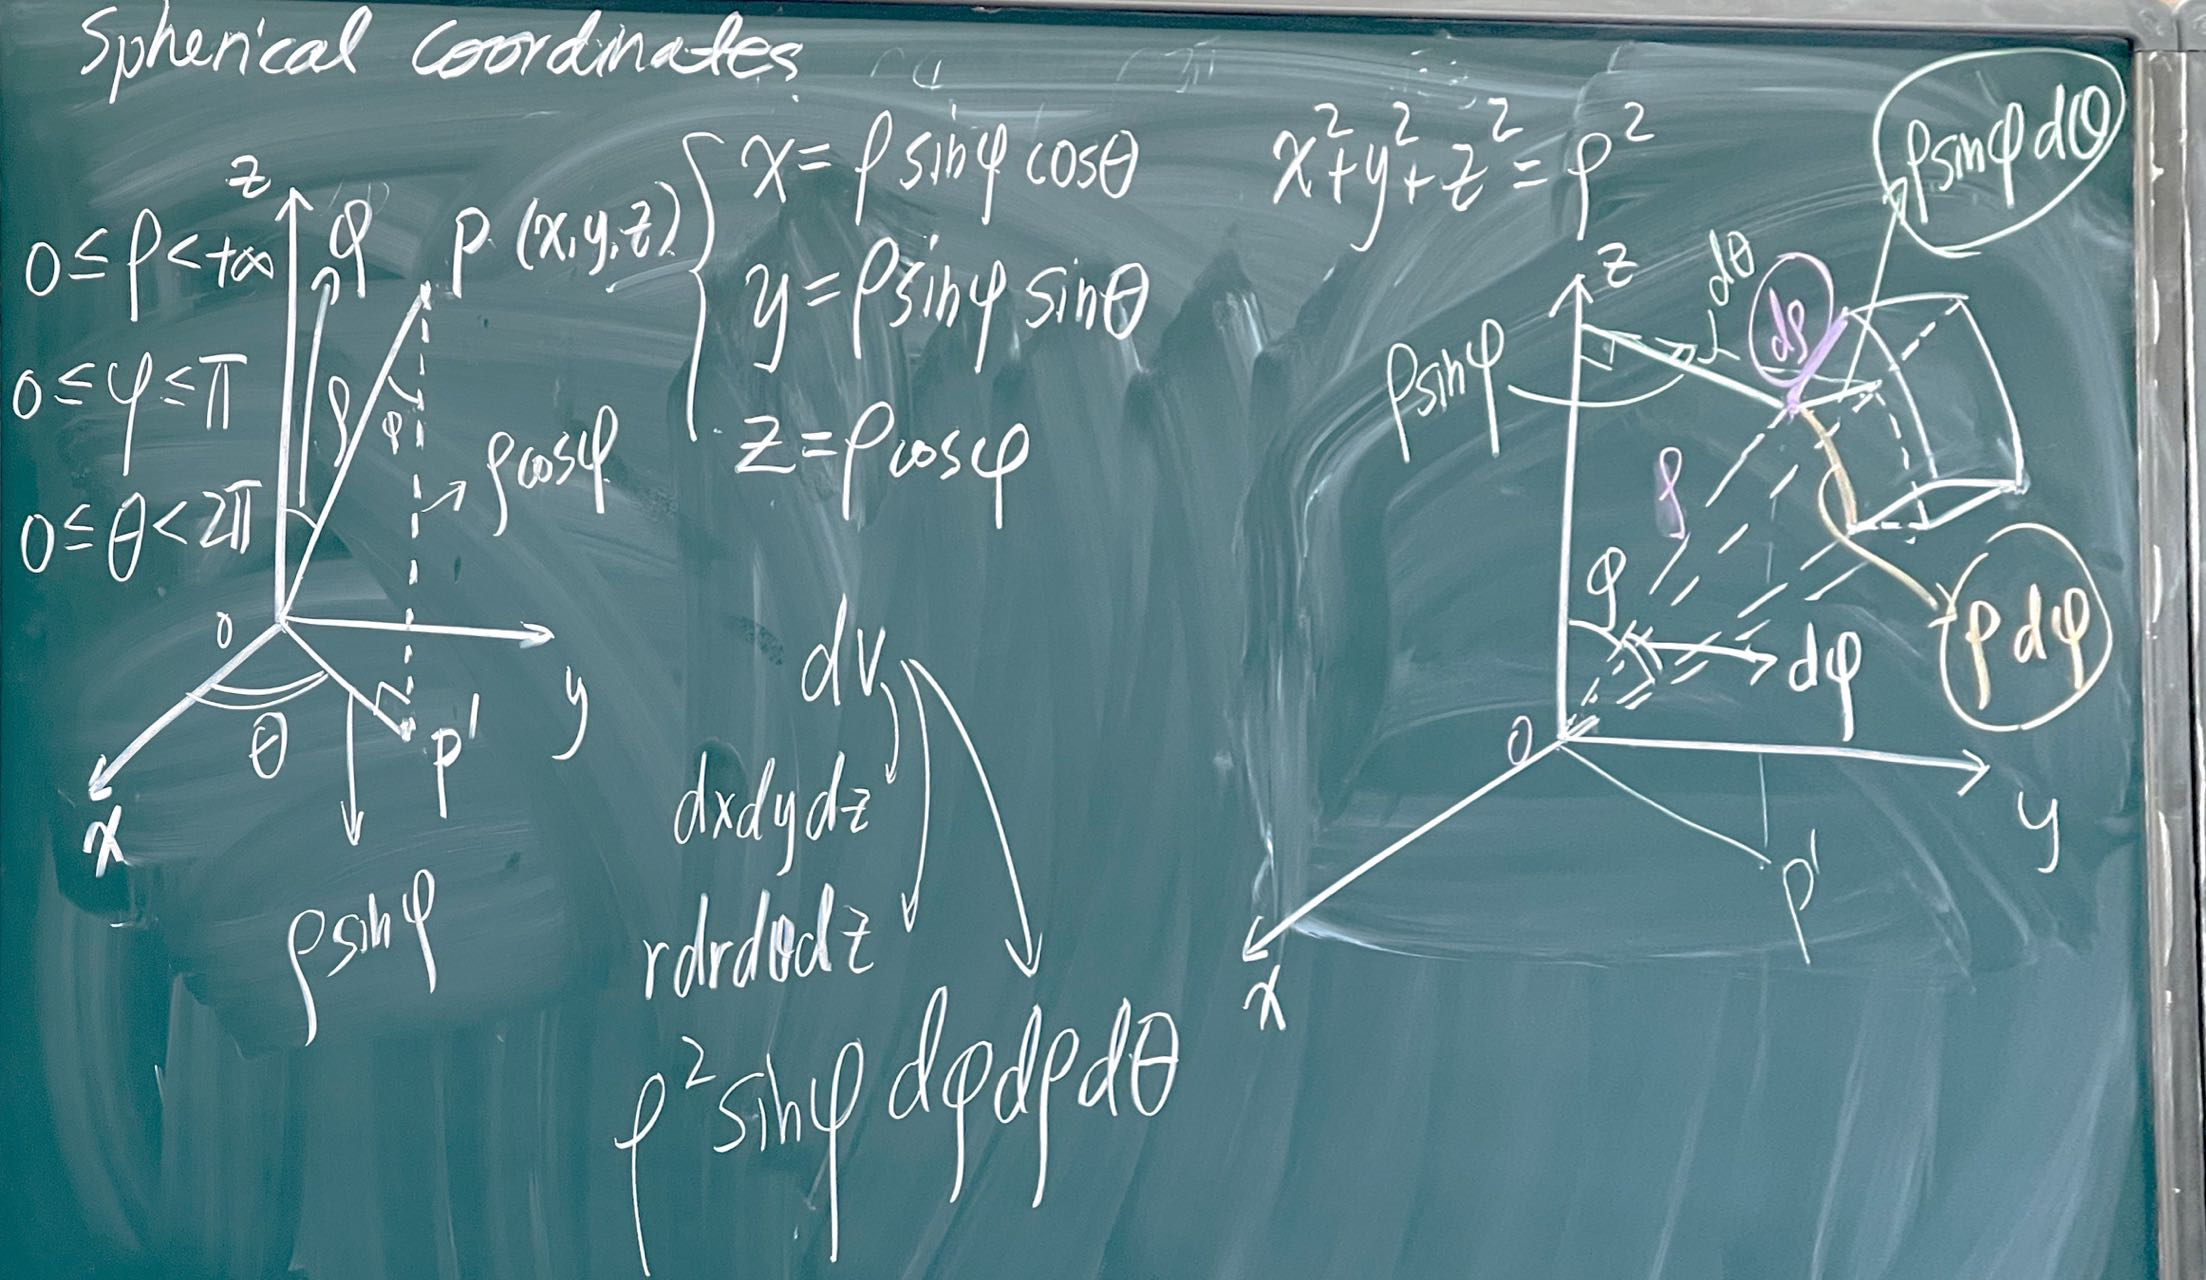 Spherical Coordinates
0≤ρ<+∞
0≤φ≤π
0≤θ<2π
z
φ
P (x,y,z)
ρ
φ
ρcosφ
o
y
θ
P'
x
ρsinφ
x=ρsinφcosθ
y=ρsinφsinθ
z=ρcosφ
x²+y²+z²=ρ²
dv
dxdydz
rdrdθdz
ρ²sinφdφdρdθ
ρsinφdθ
z
dθ
dρ
ρsinφ
ρ
φ
dφ
ρdφ
O
y
P'
x